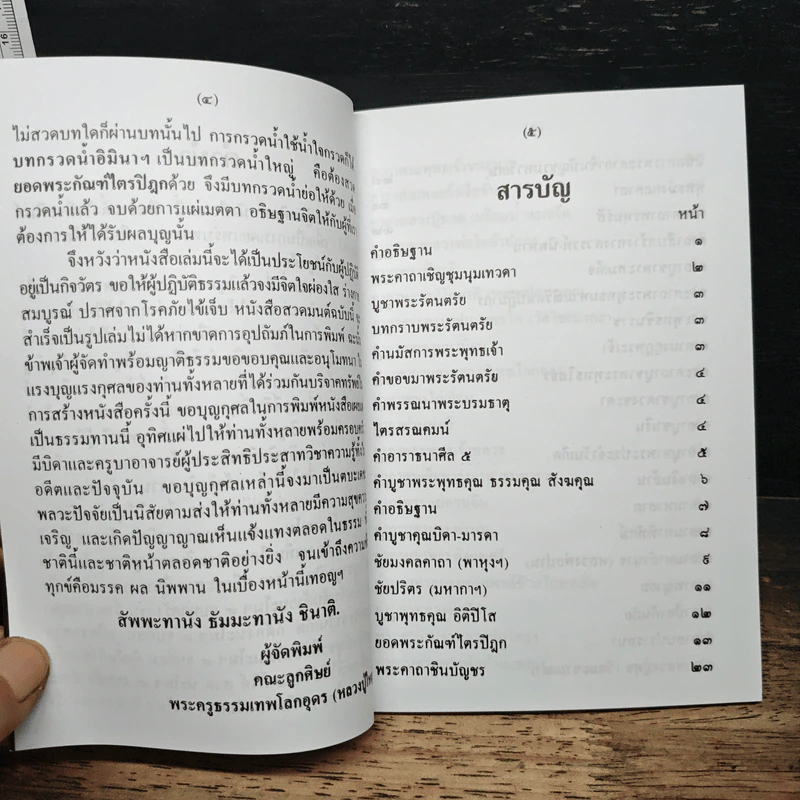 (๔)
ไม่สวดบทใดก็ผ่านบทนั้นไป การกรวดน้ำใช้น้ำใจกรวดก็ได้
บทกรวดน้ำอิมินาฯ เป็นบทกรวดน้ำใหญ่ คือต้องสวด
ยอดพระกัณฑ์ไตรปิฎกด้วย จึงมีบทกรวดน้ำย่อให้ด้วย
กรวดน้ำแล้ว จบด้วยการแผ่เมตตา อธิษฐานจิตให้กับผู้ที่เรา
ต้องการให้ได้รับผลบุญนั้น
จึงหวังว่าหนังสือเล่มนี้จะได้เป็นประโยชน์กับผู้ปฏิบัติ
อยู่เป็นกิจวัตร ขอให้ผู้ปฏิบัติธรรมแล้วจงมีจิตใจผ่องใส ร่างกาย
สมบูรณ์ ปราศจากโรคภัยไข้เจ็บ หนังสือสวดมนต์ฉบับนี้
สำเร็จเป็นรูปเล่มไม่ได้หากขาดการอุปถัมภ์ในการพิมพ์
ข้าพเจ้าผู้จัดทำพร้อมญาติธรรมขอขอบคุณและอนุโมทนา
แรงบุญแรงกุศลของท่านทั้งหลายที่ได้ร่วมกันบริจาคทรัพย์ใน
การสร้างหนังสือครั้งนี้ ขอบุญกุศลในการพิมพ์หนังสือเผยแผ่
เป็นธรรมทานนี้ อุทิศแผ่ไปให้ท่านทั้งหลายพร้อมครอบครัว
มีบิดาและครูบาอาจารย์ผู้ประสิทธิประสาทวิชาความรู้ทั้งใน
อดีตและปัจจุบัน ขอบุญกุศลเหล่านี้จงมาเป็นตบะเดชะ
พลวะปัจจัยเป็นนิสัยตามส่งให้ท่านทั้งหลายมีความสุขความ
เจริญ และเกิดปัญญาญาณเห็นแจ้งแทงตลอดในธรรม
ชาตินี้และชาติหน้าตลอดชาติอย่างยิ่ง จนเข้าถึงความพ้น
ทุกข์คือมรรค ผล นิพพาน ในเบื้องหน้านี้เทอญฯ
สัพพะทานัง ธัมมะทานัง ชินาติ.
ผู้จัดพิมพ์
คณะลูกศิษย์
พระครูธรรมเทพโลกอุดร (หลวงปู่
(๕)
สารบัญ
หน้า
คำอธิษฐาน ๑
พระคาถาเชิญชุมนุมเทวดา ๒
บูชาพระรัตนตรัย ๓
บทกราบพระรัตนตรัย ๓
คำนมัสการพระพุทธเจ้า ๓
คำขอขมาพระรัตนตรัย ๔
คำพรรณนาพระบรมธาตุ ๔
ไตรสรณคมน์ ๔
คำอาราธนาศีล ๕ ๕
คำบูชาพระพุทธคุณ ธรรมคุณ สังฆคุณ ๖
คำอธิษฐาน ๗
คำบูชาคุณบิดา-มารดา ๘
ชัยมงคลคาถา (พาหุงฯ) ๙
ชัยปริตร (มหากาฯ) ๑๑
บูชาพุทธคุณ อิติปิโส ๑๒
ยอดพระกัณฑ์ไตรปิฎก ๑๓
พระคาถาชินบัญชร ๒๓